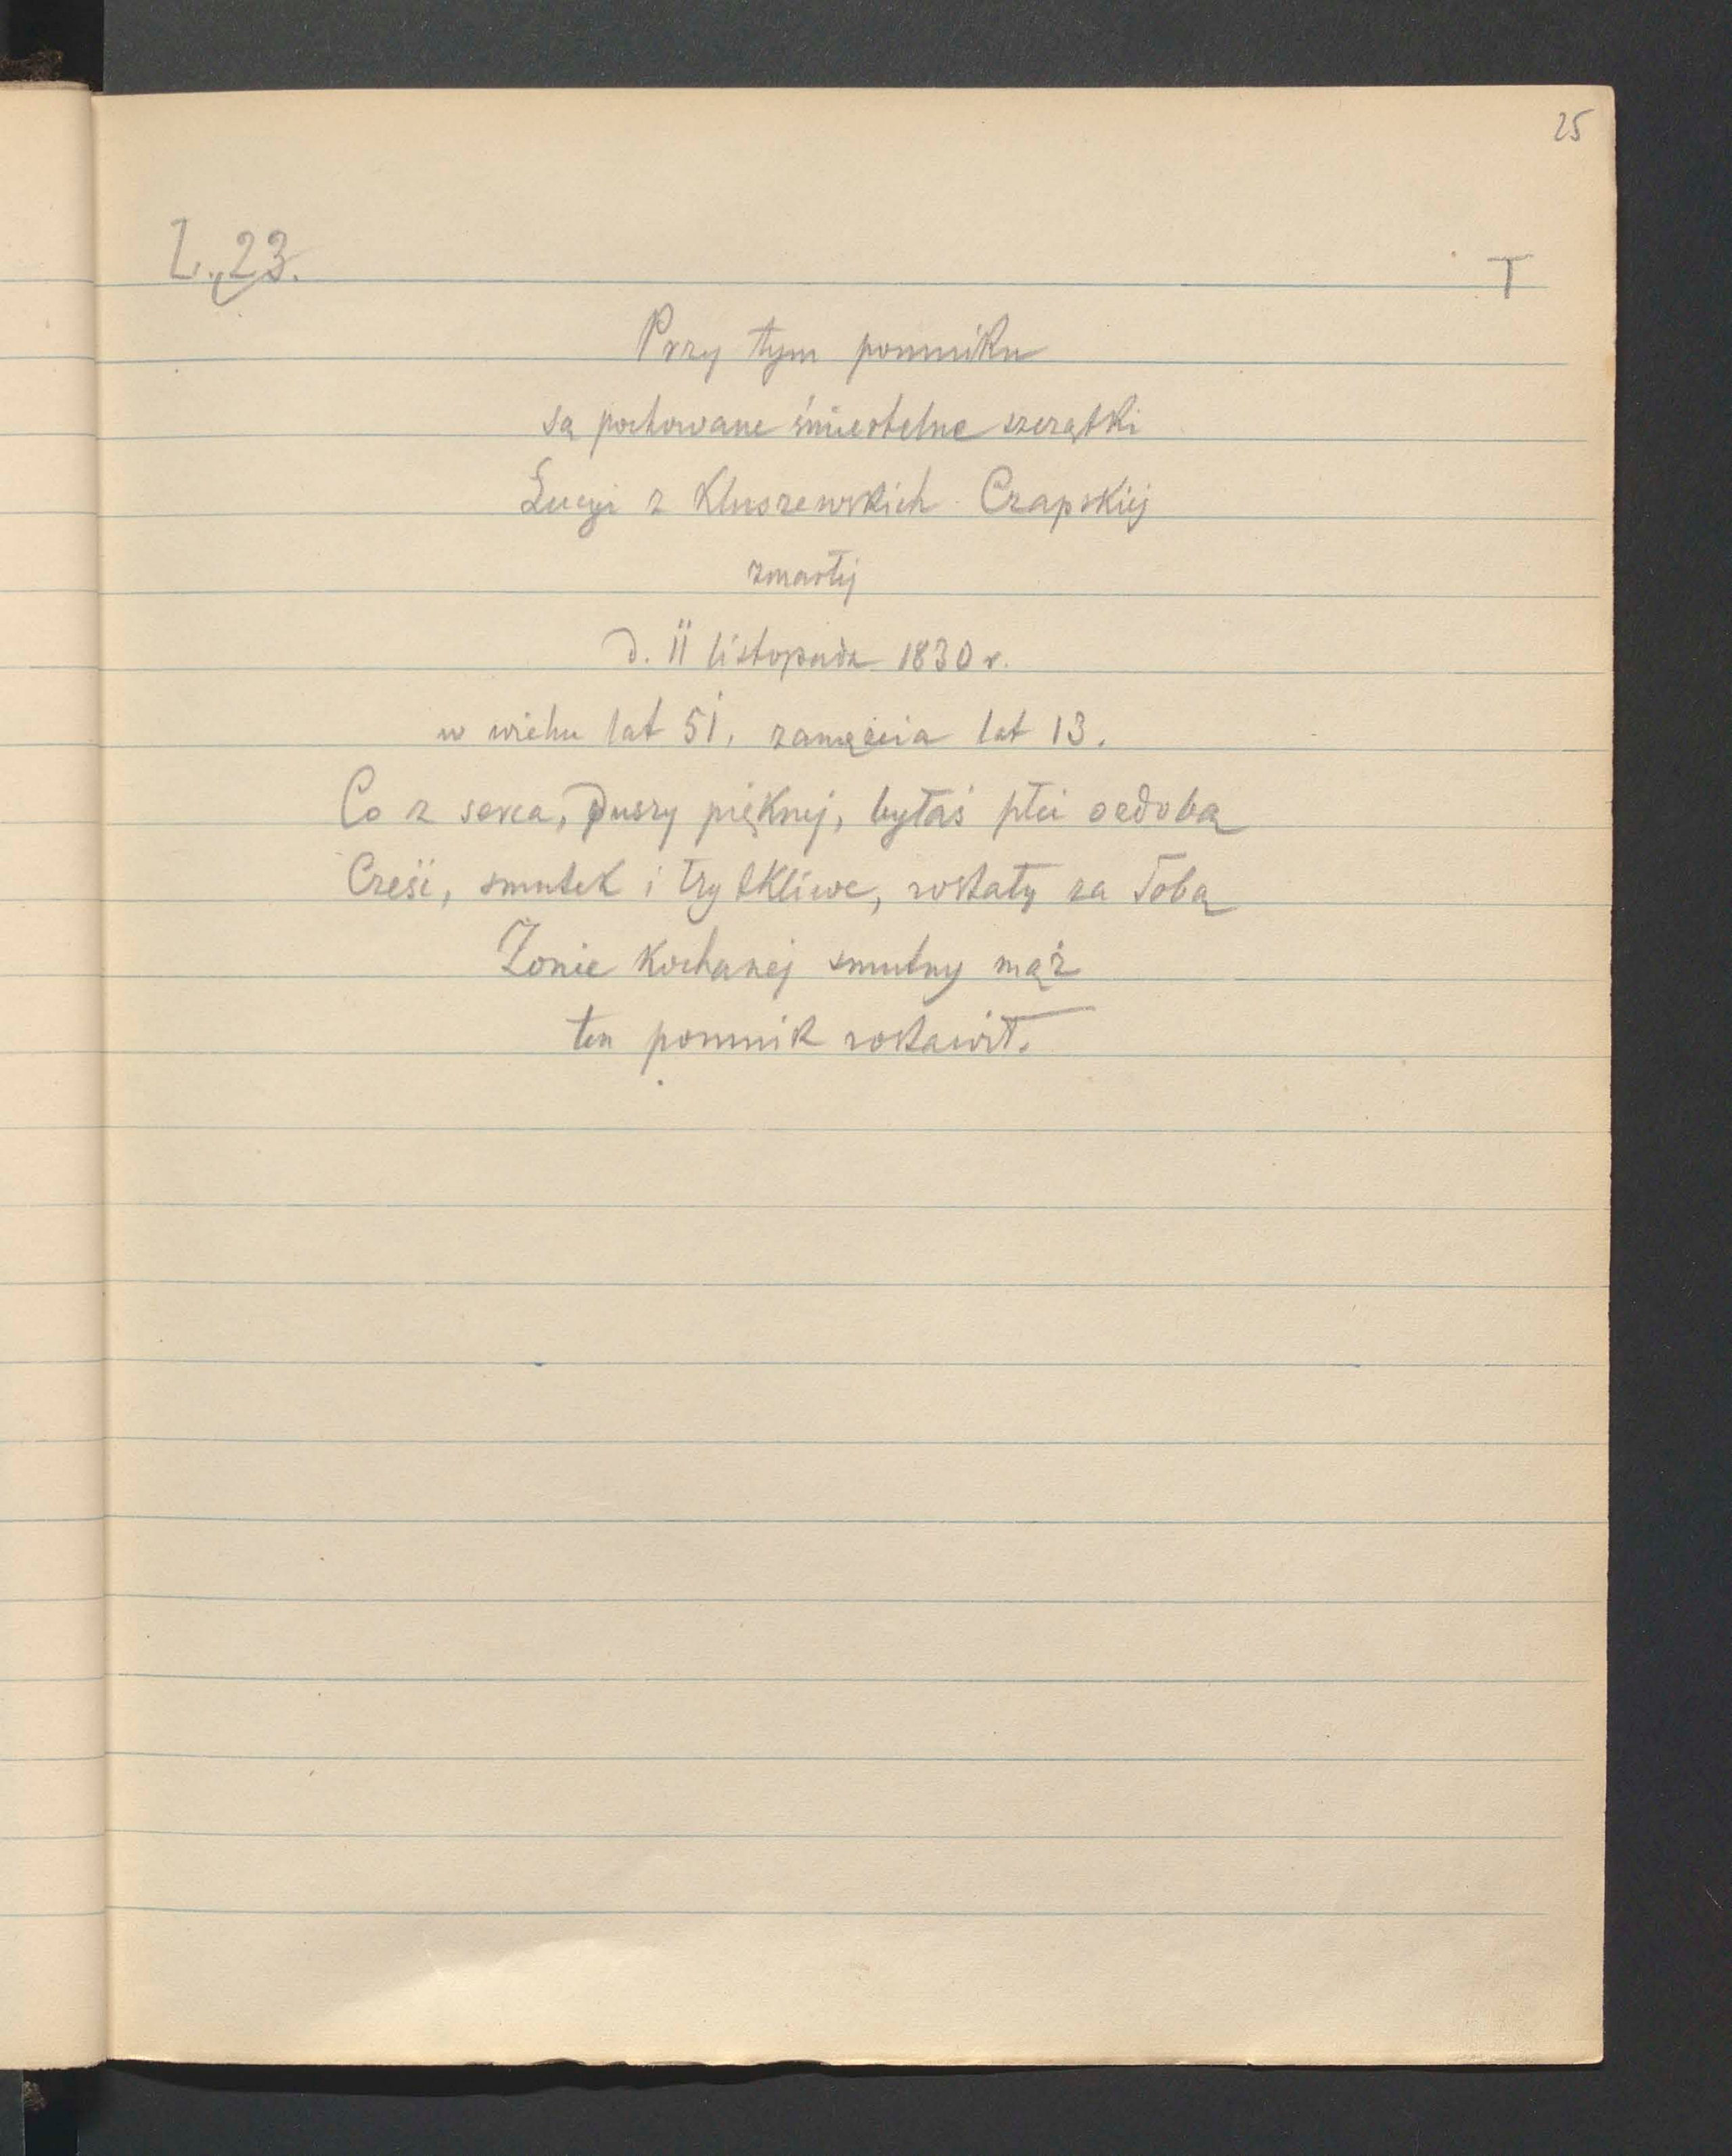 25
L. 23.
T
Przy tym pomniku
są pochowane śmiertelne szczątki
Łucyi z Kluszewskich Czapskiej
zmarłej
d. 11 listopada 1830 r.
w wieku lat 51, zamęścia lat 13.
Co z serca, Duszy pięknej, byłaś płci ozdobą
Cześć, smutek i łzy tkliwe, zostały za Tobą
Żonie kochanej smutny mąż
ten pomnik zostawił.